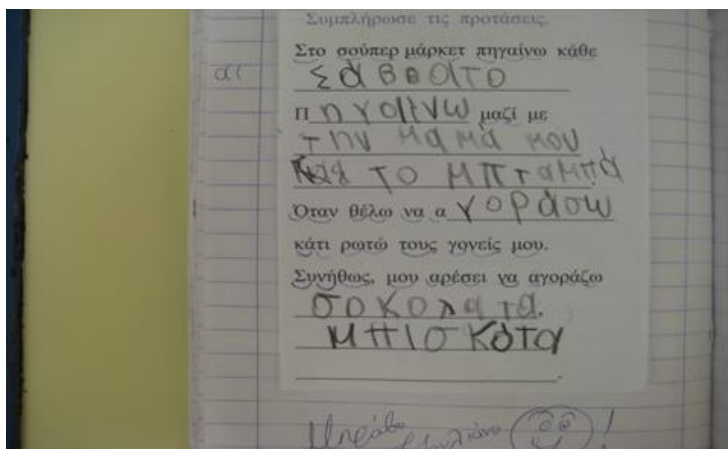 Συμπλήρωσε τις προτάσεις.
Στο σούπερ μάρκετ πηγαίνω κάθε
αι Σάββατο
Πηγαίνω μαζί με
την μαμά μου
και το μπταμπά
Όταν θέλω να αγοράσω
κάτι ρωτώ τους γονείς μου.
Συνήθως, μου αρέσει να αγοράζω
σοκολατα,
μπισκότα
Μπράβο
!